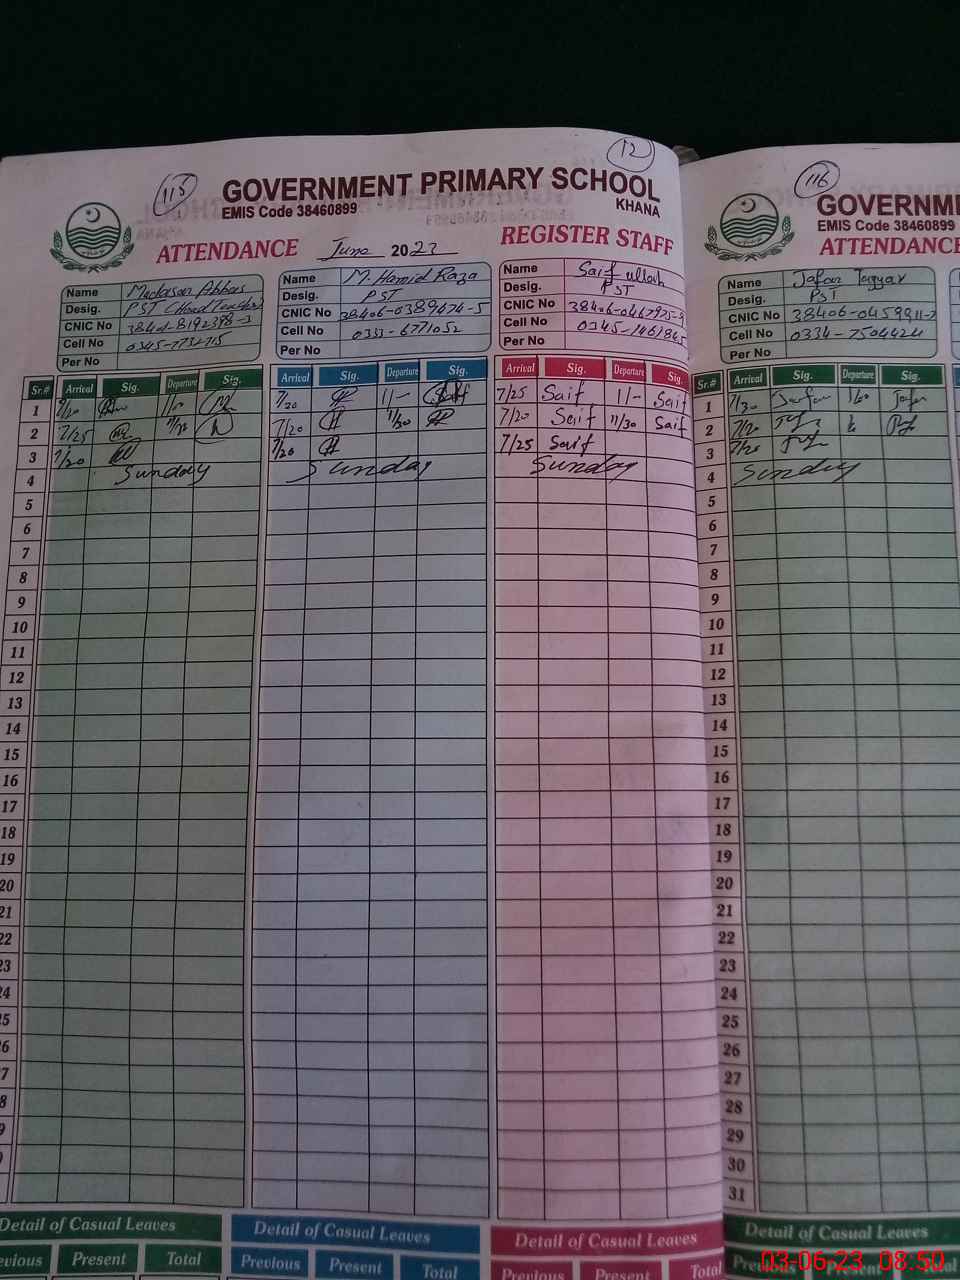 115
12
GOVERNMENT PRIMARY SCHOOL
EMIS Code 38460899
KHANA
ATTENDANCE June 2023 REGISTER STAFF
Name Mudasar Abbas
Desig. PST (Head Teacher)
CNIC No
Cell No
Per No
Name M. Hamid Raza
Desig. PST
CNIC No 38406-0389474-5
Cell No 0333-6771052
Per No
Name Saif ullah
Desig. PST
CNIC No
Cell No
Per No
Sr.# Arrival Sig. Departure Sig. Arrival Sig. Departure Sig. Arrival Sig. Departure Sig.
1 7/20 1/- 7/25 Saif 1/- Saif
2 7/25 7/20 11/30 7/20 Saif 11/30 Saif
3 7/20 7/20 7/25 Saif
4 Sunday Sunday Sunday
5
6
7
8
9
10
11
12
13
14
15
16
17
18
19
20
21
22
23
24
25
26
27
28
29
Detail of Casual Leaves Detail of Casual Leaves Detail of Casual Leaves
Previous Present Total Previous Present Total Previous Present Total
116
GOVERNME
EMIS Code 38460899
ATTENDANCE
Name Jafar Tayyar
Desig. PST
CNIC No
Cell No 0334-7504424
Per No
Sr.# Arrival Sig. Departure Sig.
1 7/30 Jafar Jafar
2
3
4 Sunday
5
6
7
8
9
10
11
12
13
14
15
16
17
18
19
20
21
22
23
24
25
26
27
28
29
30
31
Detail of Casual Leaves
Previous Present Total
03-06-23 08:50